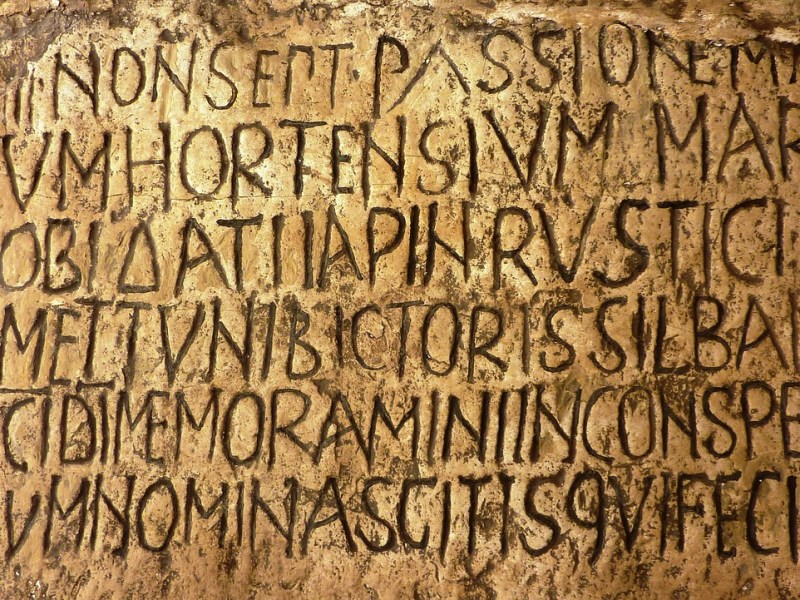 II NON SEPT · PASSIONE M
VM HORTENSIVM MAR
OBI DATI IAPIN RVSTICI
METTVNI BICTORIS SILBA
CI DI MEMORAMINI IN CONSPE
VM NOMINA SCITIS QVI FECI